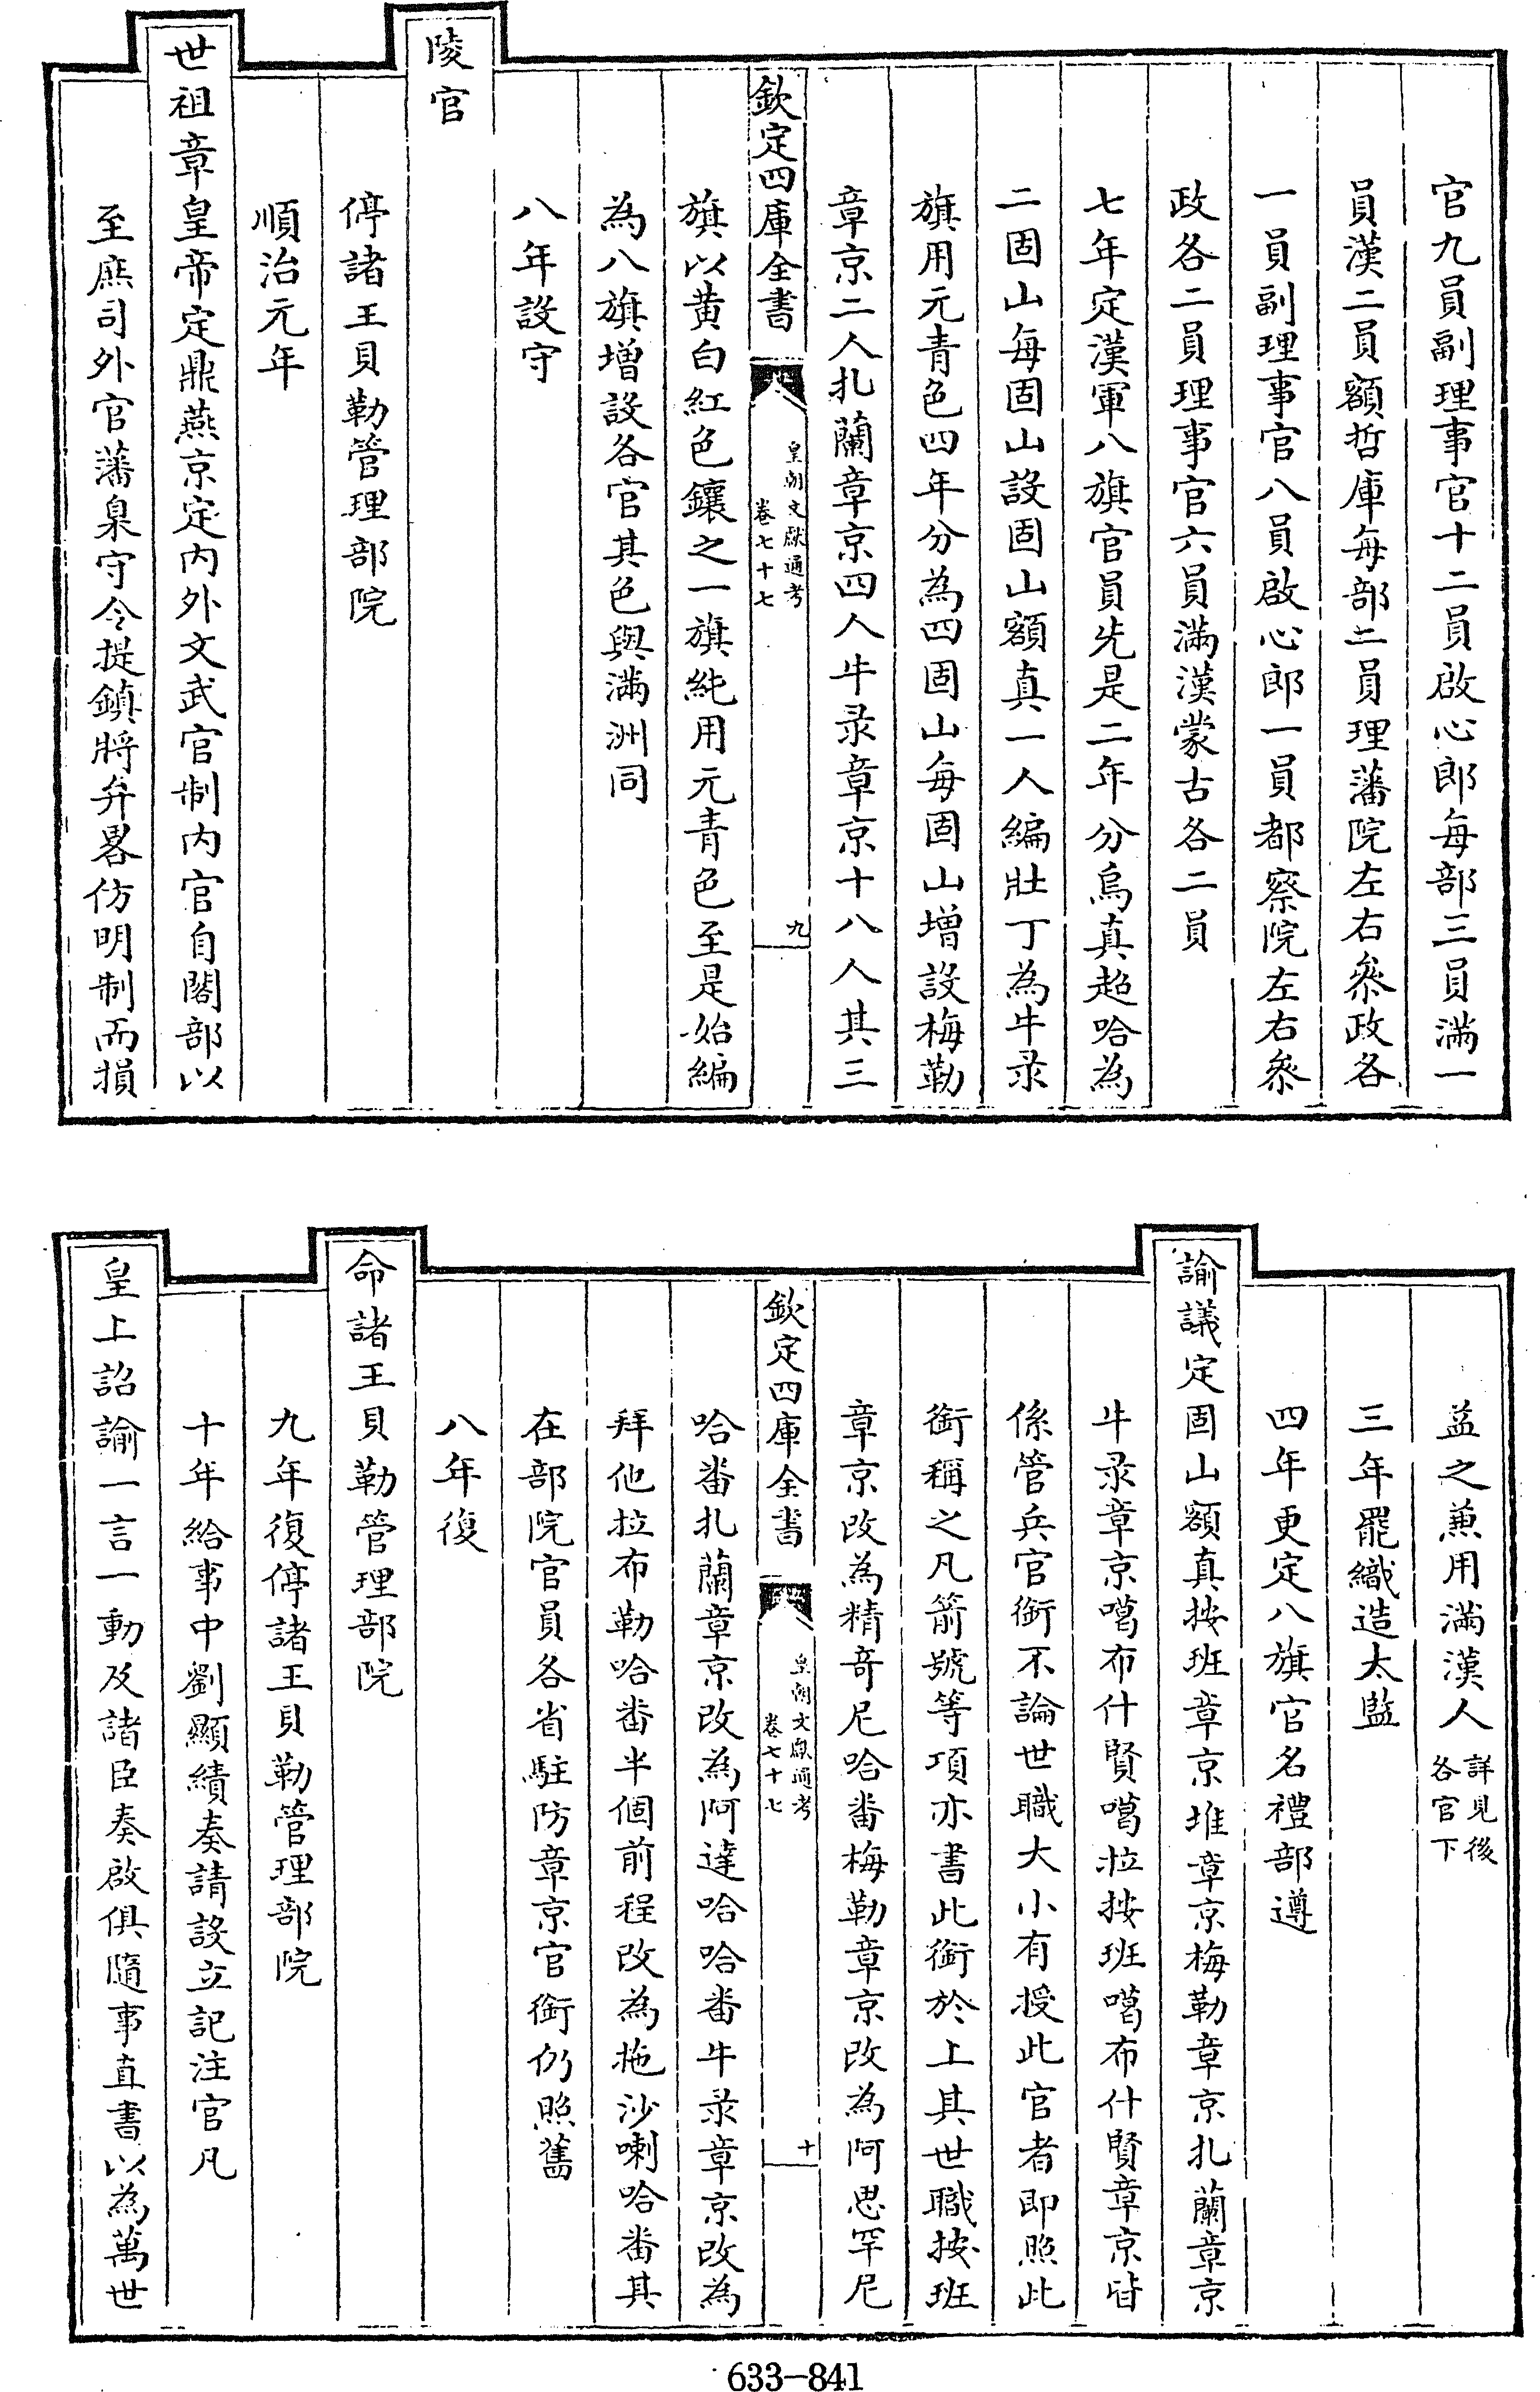 官九員副理事官十二員啟心郎每部三員滿一
員漢二員額哲庫每部二員理藩院左右叅政各
一員副理事官八員啟心郎一員都察院左右叅
政各二員理事官六員滿漢蒙古各二員
七年定漢軍八旗官員先是二年分烏真超哈為
二固山每固山設固山額真一人編壯丁為牛录
旗用元青色四年分為四固山每固山增設梅勒
章京二人扎蘭章京四人牛录章京十八人其三
欽定四庫全書
皇朝文獻通考
卷七十七
九
旗以黄白紅色鑲之一旗純用元青色至是始編
為八旗增設各官其色與滿洲同
八年設守
陵官
停諸王貝勒管理部院
順治元年
世祖章皇帝定鼎燕京定内外文武官制内官自閣部以
至庶司外官藩臬守令提鎮將弁畧仿明制而損
益之兼用滿漢人詳見後
各官下
三年罷織造太監
四年更定八旗官名禮部遵
諭議定固山額真按班章京堆章京梅勒章京扎蘭章京
牛录章京噶布什賢噶拉按班噶布什賢章京皆
係管兵官銜不論世職大小有授此官者即照此
銜稱之凡箭號等項亦書此銜於上其世職按班
章京改為精竒尼哈番梅勒章京改為阿思罕尼
欽定四庫全書
皇朝文獻通考
卷七十七
十
哈番扎蘭章京改為阿達哈哈番牛录章京改為
拜他拉布勒哈番半個前程改為拖沙喇哈番其
在部院官員各省駐防章京官銜仍照舊
八年復
命諸王貝勒管理部院
九年復停諸王貝勒管理部院
十年給事中劉顯績奏請設立記注官凡
皇上詔諭一言一動及諸臣奏啟俱隨事直書以為萬世
633-841